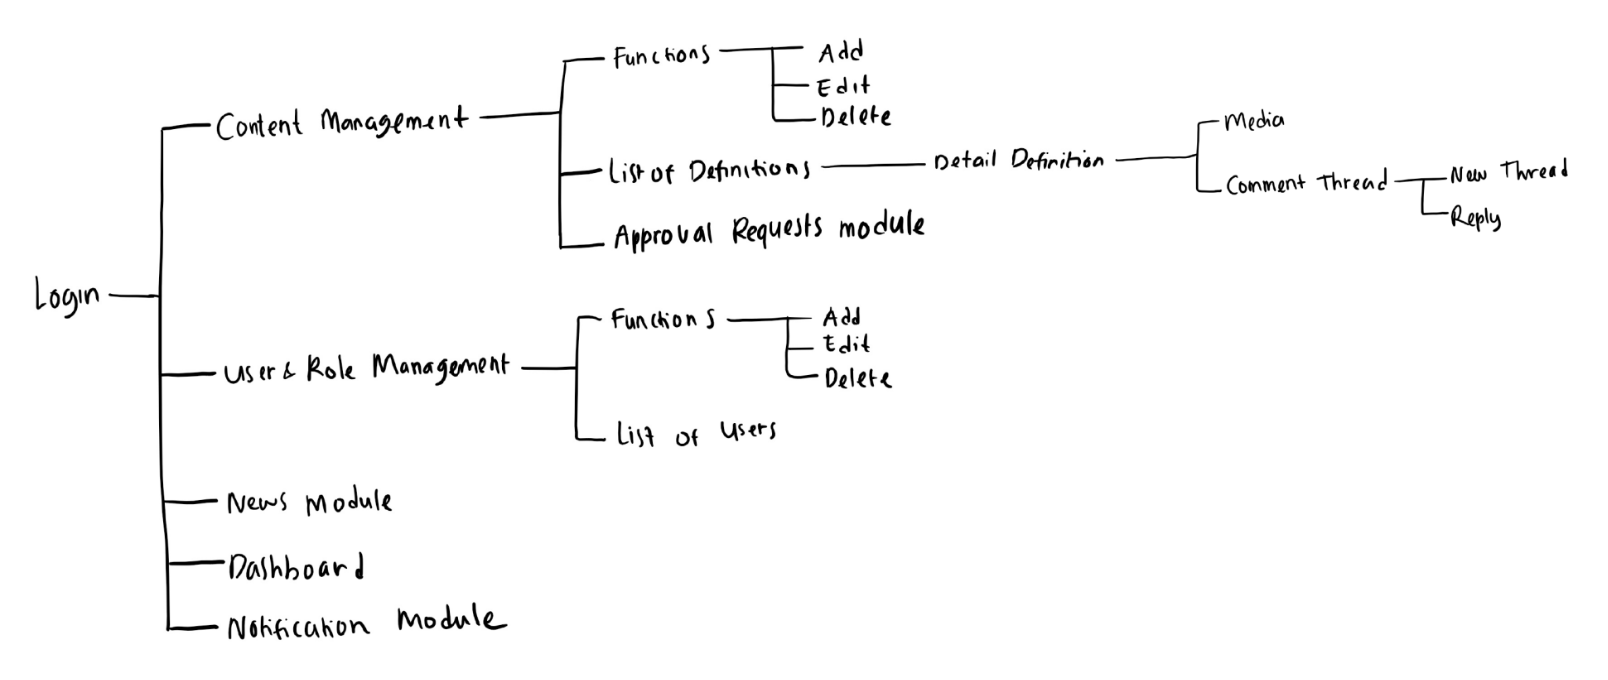 Login
Content Management
Functions
Add
Edit
Delete
List of Definitions
Detail Definition
Media
Comment Thread
New Thread
Reply
Approval Requests module
User & Role Management
Functions
Add
Edit
Delete
List of Users
News Module
Dashboard
Notification Module